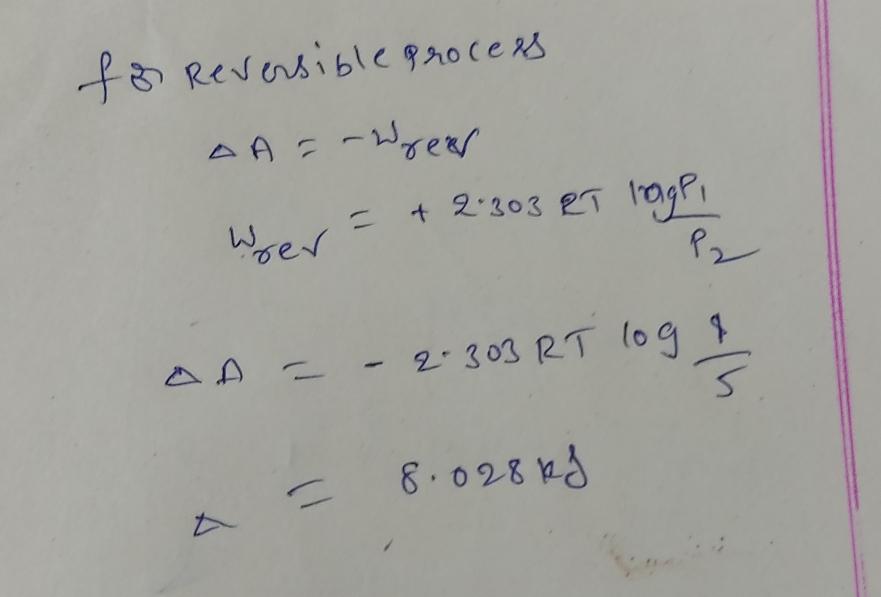 for Reversible process
ΔA = -Wrev
Wrev = + 2.303 RT log P1/P2
ΔA = - 2.303 RT log 1/5
Δ = 8.028 kJ